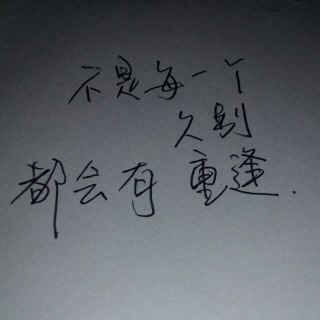 不是每一个
久别
都会有重逢.